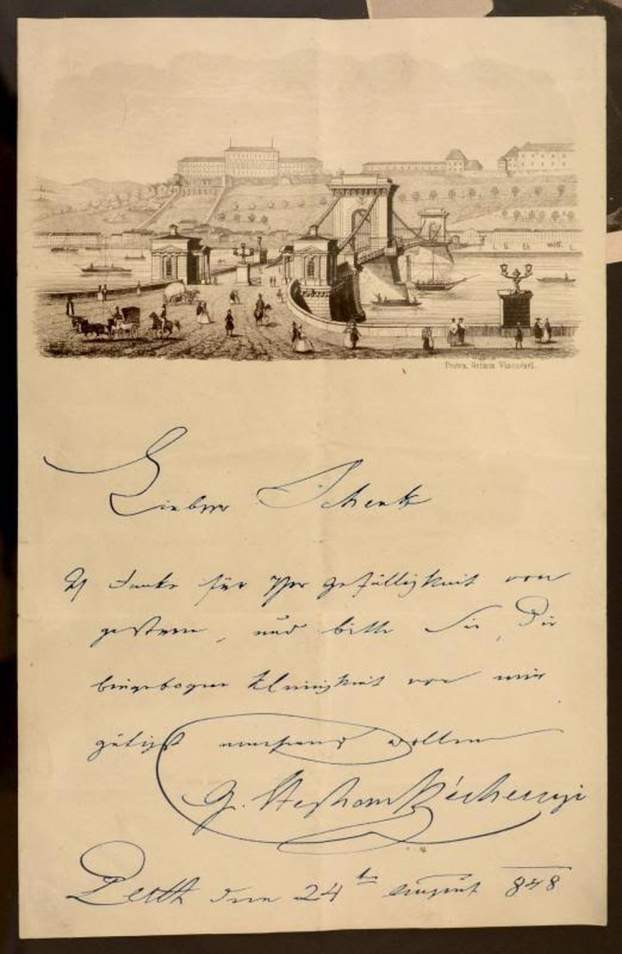 Lieber Schenk
Ich danke für Ihre Gefälligkeit von
gestern, und bitte Sie, die
beigebogene Kleinigkeit von mir
gütigst wollen
G. Stephan Széchenyi
Pesth den 24ten August 848